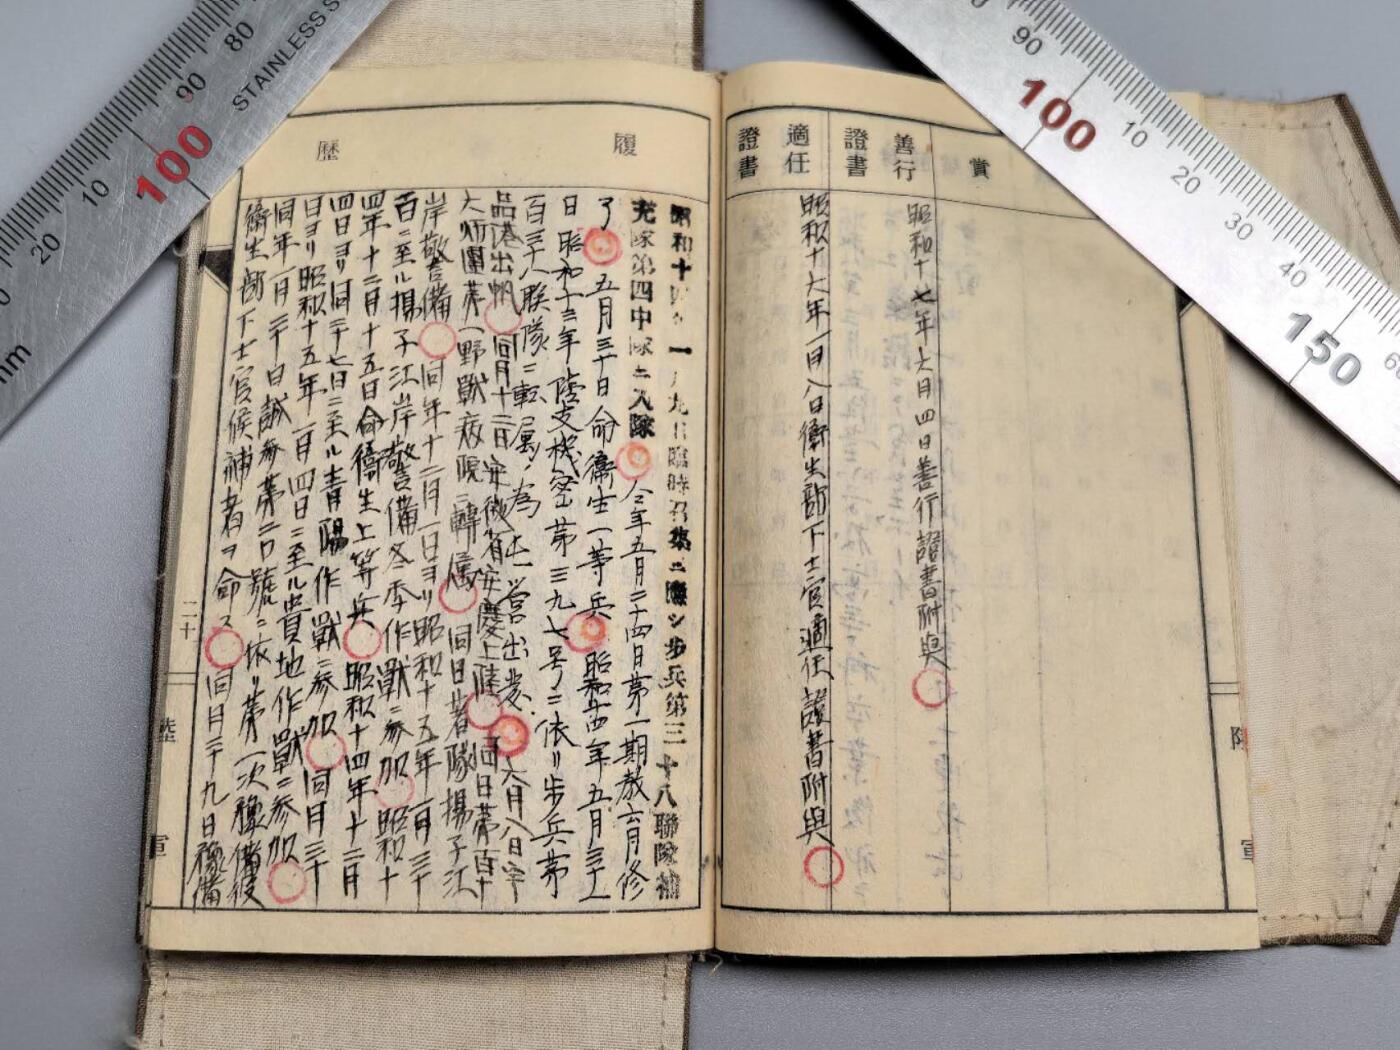 賞
善行
證書
昭和十七年六月四日善行證書附與
適任
證書
昭和十六年一月八日衞生部下士官適任證書附與
履歷
昭和十四年一月九日臨時召集ニ應シ步兵第三十八聯隊補
充隊第四中隊ニ入隊 仝年五月二十四日第一期教育修
了 五月三十日命衞生一等兵 昭和十四年五月三十一
日昭和十三年陸支機密第三九七号ニ依リ步兵第
百三十八聯隊ニ転属ノ為出營出發 六月八日宇
品港出帆 同月十二日安徽省安慶上陸 同日第百十
六師團第一野戰病院ニ轉属 同日着隊揚子江
岸警備 同年十二月一日ヨリ昭和十五年一月三十
一日ニ至ル揚子江岸警備冬季作戰ニ參加 昭和十
四年十二月十五日命衞生上等兵 昭和十四年十二月
四日ヨリ同二十七日ニ至ル青陽作戰ニ參加 同月三十
日ヨリ昭和十五年一月四日ニ至ル貴地作戰ニ參加
同年一月二十日誠參第二口號ニ依リ第一次豫備役
衞生部下士官候補者ヲ命ス 同月二十九日豫備
二十
陸
軍
陸
軍
80
90
100
10
20
mm
STAINLESS S
90
100
10
20
30
40
150
60